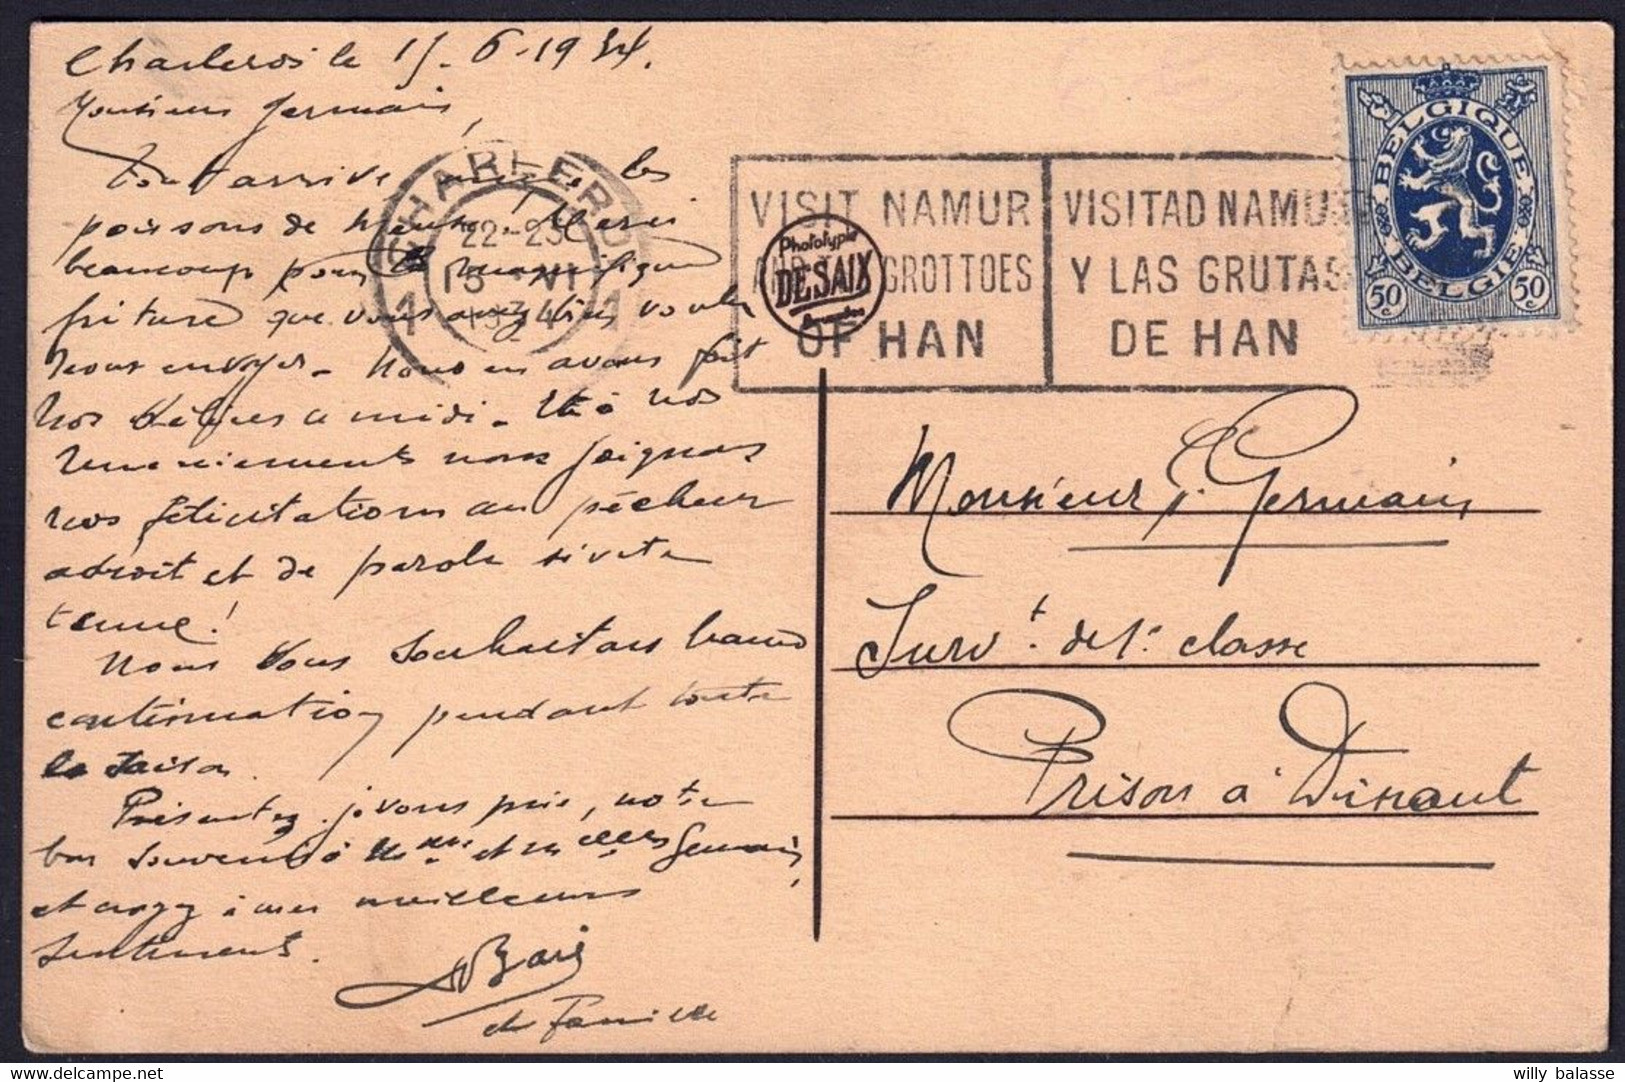 Charleroi le 15-6-1934.
Monsieur Germain,
Tout arrive même les
poissons de Meuse. Merci
beaucoup pour la magnifique
friture que vous avez bien voulu
nous envoyer. Nous en avons fait
nos délices a midi. Et à nos
remerciements nous joignons
nos félicitations au pêcheur
adroit et de parole si vite
tenue!
Nous vous souhaitons bonne
continuation pendant toute
la saison.
Présentez, je vous prie, notre
bon souvenir à Mme et melles Germain,
et croyez à mes meilleurs
sentiments.
et famille
CHARLEROI
1 1
22-23
15 VI
1934
VISIT NAMUR
GROTTOES
OF HAN
VISITAD NAMUR
Y LAS GRUTAS
DE HAN
Phototypie
DESAIX
Bruxelles
BELGIQUE
BELGIE
50 c
50 c
Monsieur Germain
Survt. de 1e classe
Prison à Dinant
willy balasse